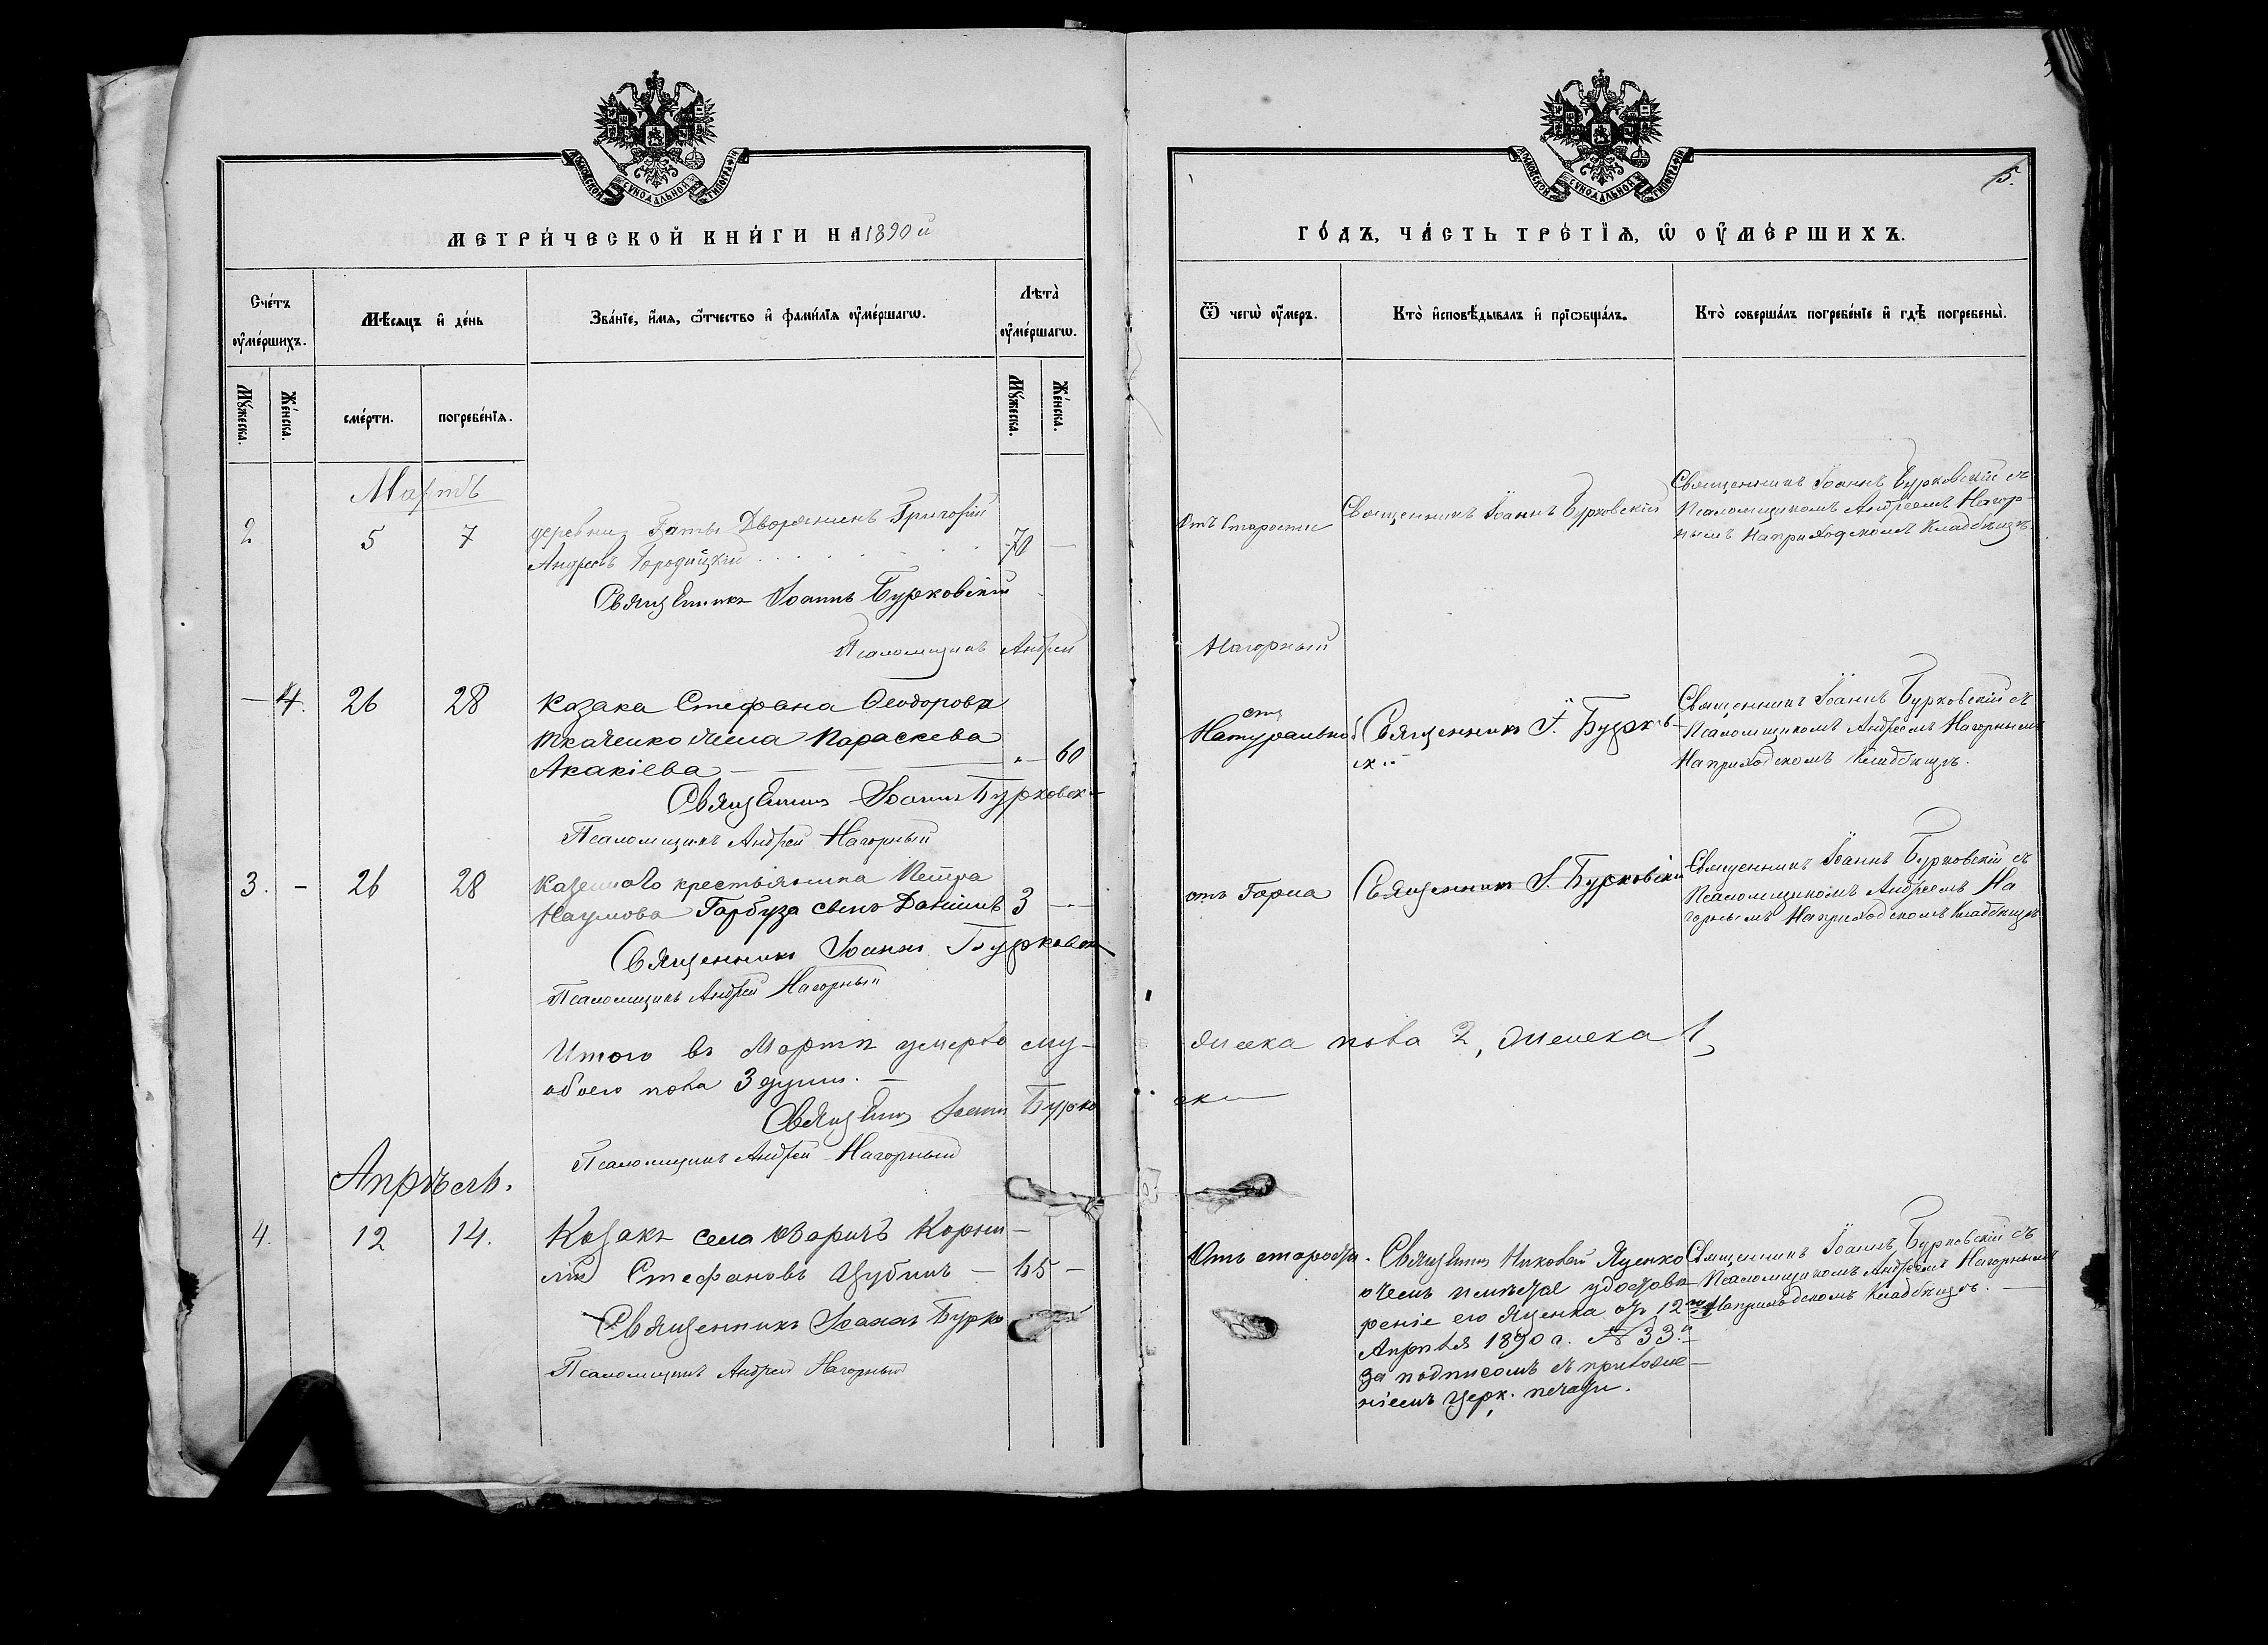 МОСКОВСКОЙ СѴНОДАЛЬНОЙ ТИПОГРАФІИ
МЕТРИ́ЧЕСКОЙ КНИ́ГИ НА 1890й
Сче́тъ ᲂу҆ме́ршихъ.
Мѣ́сяцъ и҆ де́нь
Зва́нїе, и҆́мѧ, ѻ҆́тчество и҆ фами́лїѧ ᲂу҆ме́ршагѡ.
Лѣта̀ ᲂу҆ме́ршагѡ.
Мꙋ́жеска.
Же́нска.
сме́рти.
погребе́нїѧ.
Мꙋ́жеска.
Же́нска.
Мартъ
2 5 7 деревни Гаты Дворянинъ Григорій
Андреевъ Городицкій 70 —
Священникъ Іоаннъ Бурковскій
Псаломщикъ Андрей
— 4. 26 28 Козака Стефана Ѳеодорова
Ткаченко жена Параскева
Акакіева — 60
Священникъ Іоаннъ Бурковск
Псаломщикъ Андрей Нагорный
3. – 26 28 Казеннаго крестьянина Петра
Наумова Гарбуза сынъ Даніилъ 3 —
Священникъ Іоаннъ Бурковск
Псаломщикъ Андрей Нагорный
Итого въ Мартѣ умерло му-
обоего пола 3 души. —
Священникъ Іоаннъ Бурко
Псаломщикъ Андрей Нагорный
Апрѣль.
4. 12 14. Козакъ села Корни-
лій Стефановъ — 65 —
Священникъ Іоаннъ Бурко
Псаломщикъ Андрей Нагорный
МОСКОВСКОЙ СѴНОДАЛЬНОЙ ТИПОГРАФІИ
5.
ГО́ДЪ, ЧА́СТЬ ТРЕ́ТЇѦ, Ѡ҆ ОУ҆МЕ́РШИХЪ.
Ѿ чегѡ̀ ᲂу҆́меръ.
Кто̀ и҆сповѣ́дывалъ и҆ прїѡбща́лъ.
Кто̀ соверша́лъ погребе́нїе и҆ гдѣ̀ погребены̀.
Отъ Старости
Священникъ Іоаннъ Бурковскій
Священникъ Іоаннъ Бурковскій съ
Псаломщикомъ Андреемъ Нагор-
нымъ На приходскомъ Кладбищѣ
Нагорный
Натурально
Священникъ І. Бурков-
ск
Священникъ Іоаннъ Бурковскій съ
Псаломщикомъ Андреемъ Нагорнымъ
На приходскомъ Кладбищѣ.
отъ Горла
Священникъ І. Бурковскій
Священникъ Іоаннъ Бурковскій съ
Псаломщикомъ Андреемъ На
горнымъ На приходскомъ Кладбищѣ
жеска пола 2, женска 1,
ск
Отъ старости.
Священникъ Николай Яценко
о чемъ имѣется удостовѣ-
реніе его Яценка отъ 12го
Апрѣля 1890 г. № 33.й
За подписомъ съ приложе-
ніемъ церк. печати.
Священникъ Іоаннъ Бурковскій съ
Псаломщикомъ Андреемъ Нагорнымъ
На приходскомъ Кладбищѣ. —